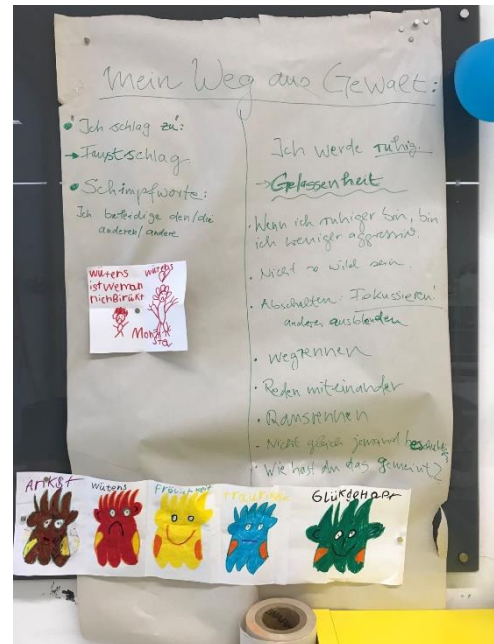 mein Weg aus Gewalt:
• Ich schlag zu:
→ Faustschlag
• Schimpfworte:
Ich beleidige den/die
anderen/andere
wutens
ist weman
nich
wutens
Monsta
Ich werde ruhig.
→ Gelassenheit
• Wenn ich ruhiger bin, bin
ich weniger aggressiv.
• Nicht so wild sein.
• Abschalten: Fokussieren
andere ausblenden
• wegrennen
• Reden miteinander
• Rausrennen
• Nicht gleich jemand
• Wie hast du das gemeint?
Wutens